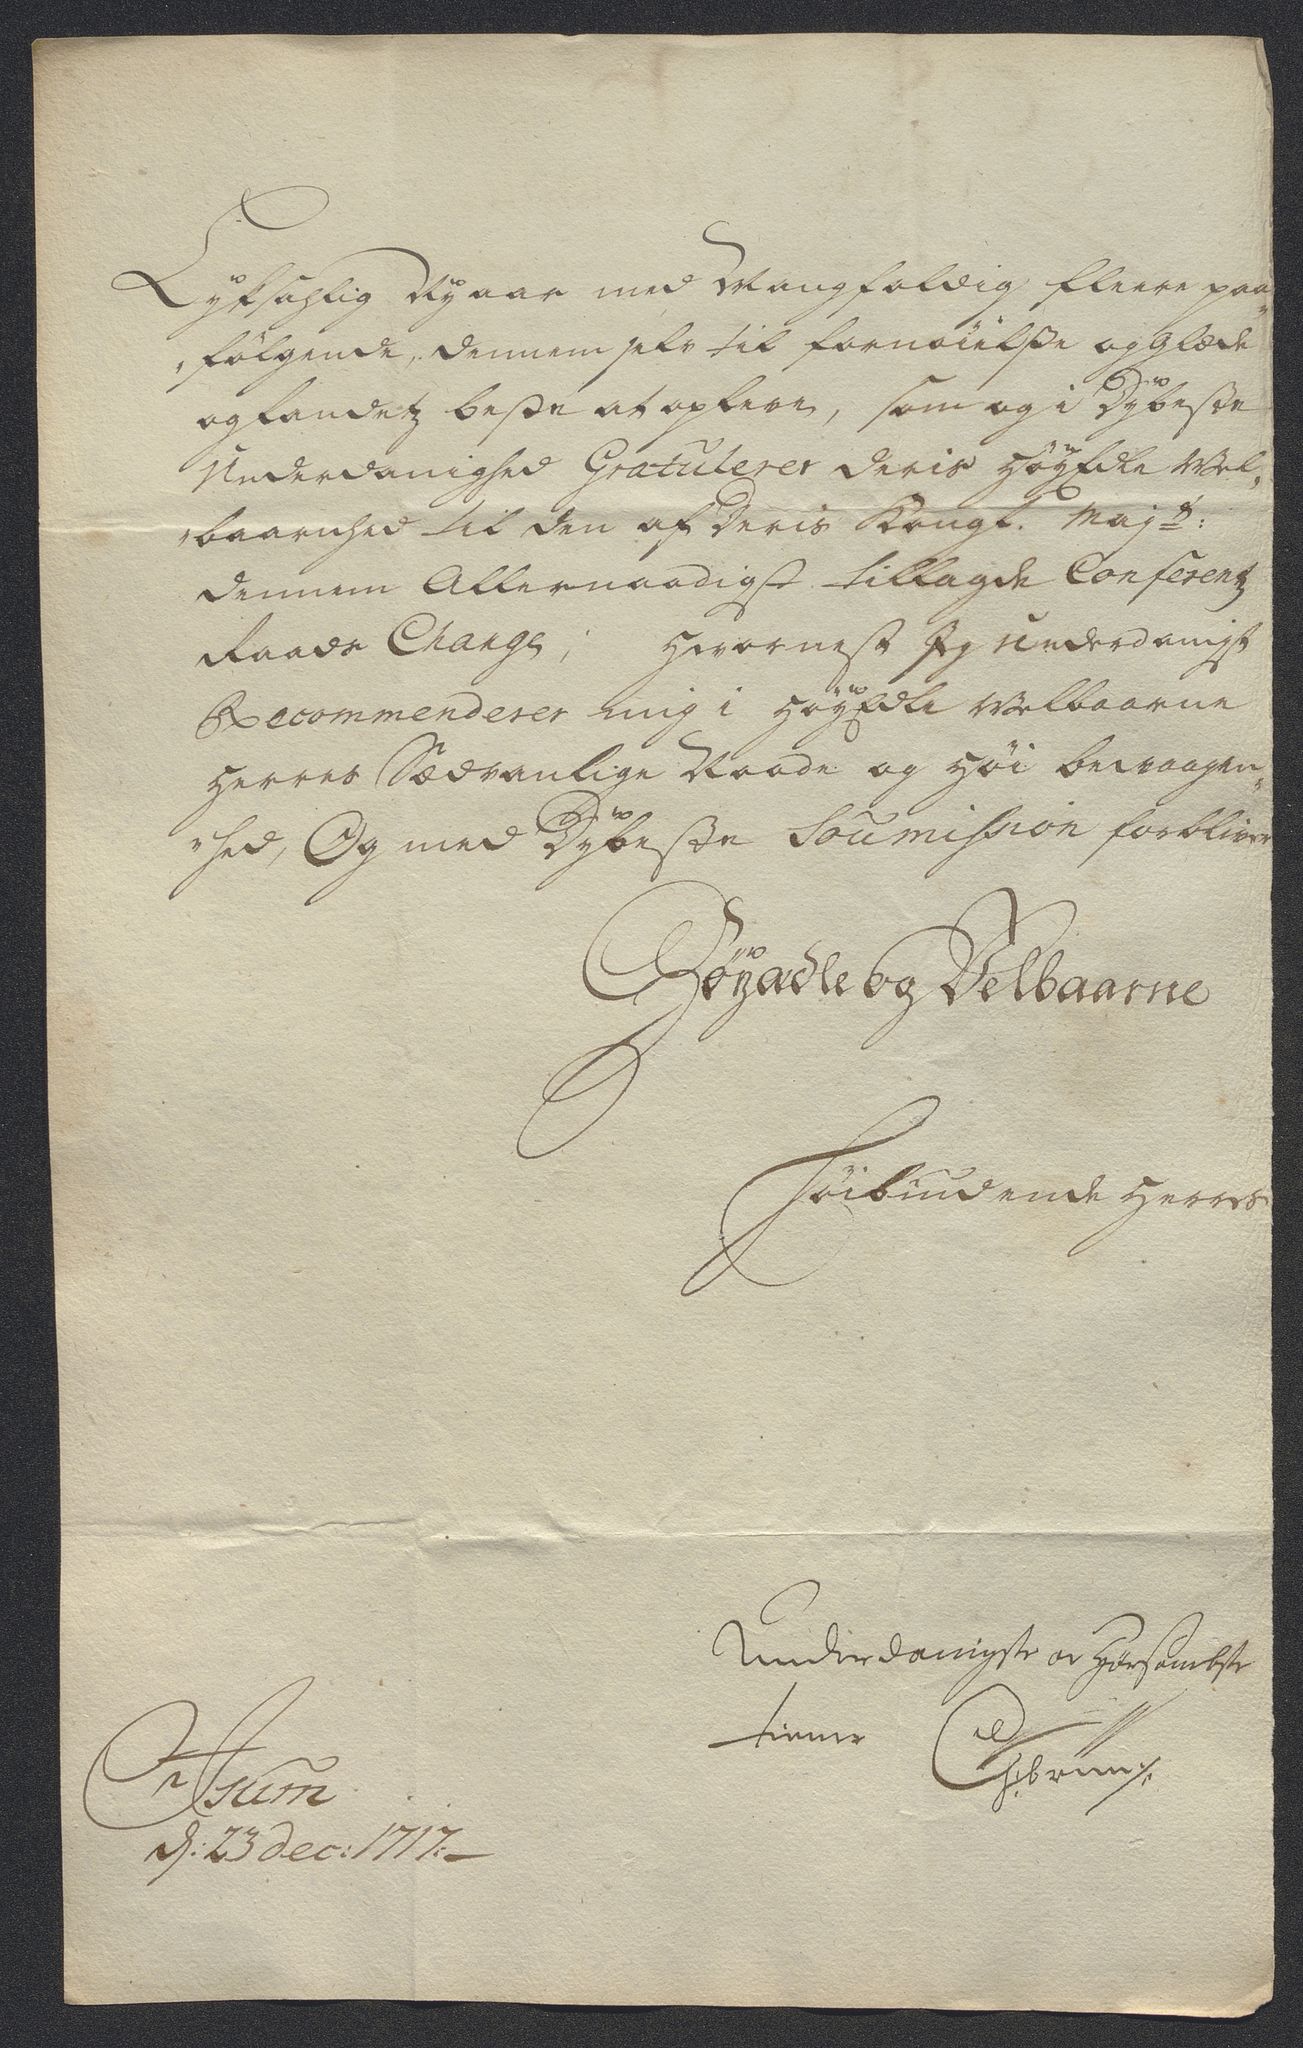 Lyksahlig Nyaar med Mangfoldig fleere paa„
„følgende, dennem selv til fornøielsse og glæde
og landetz beste at opleve, som og i Dÿbeste
Underdanighed Gratulerer deris HøyEdle Vel„
„baarnhed til den af Deris Kongl. Mayt:
dennem Allernaadigst tillagde Conferentz
Raads Charge; Hvornest Jeg underdanigst
Recommenderer mig i HøÿEdle Velbaarne
Herres Sædvanlige Naade og Høi bevaagen„
„hed, Og med Dÿbeste Soumission forbliver
Høÿædle og Velbaarne
Høibiudende Herres
Underdanigste og Hørsambste
tiener
Asum
d: 23 dec: 1717.